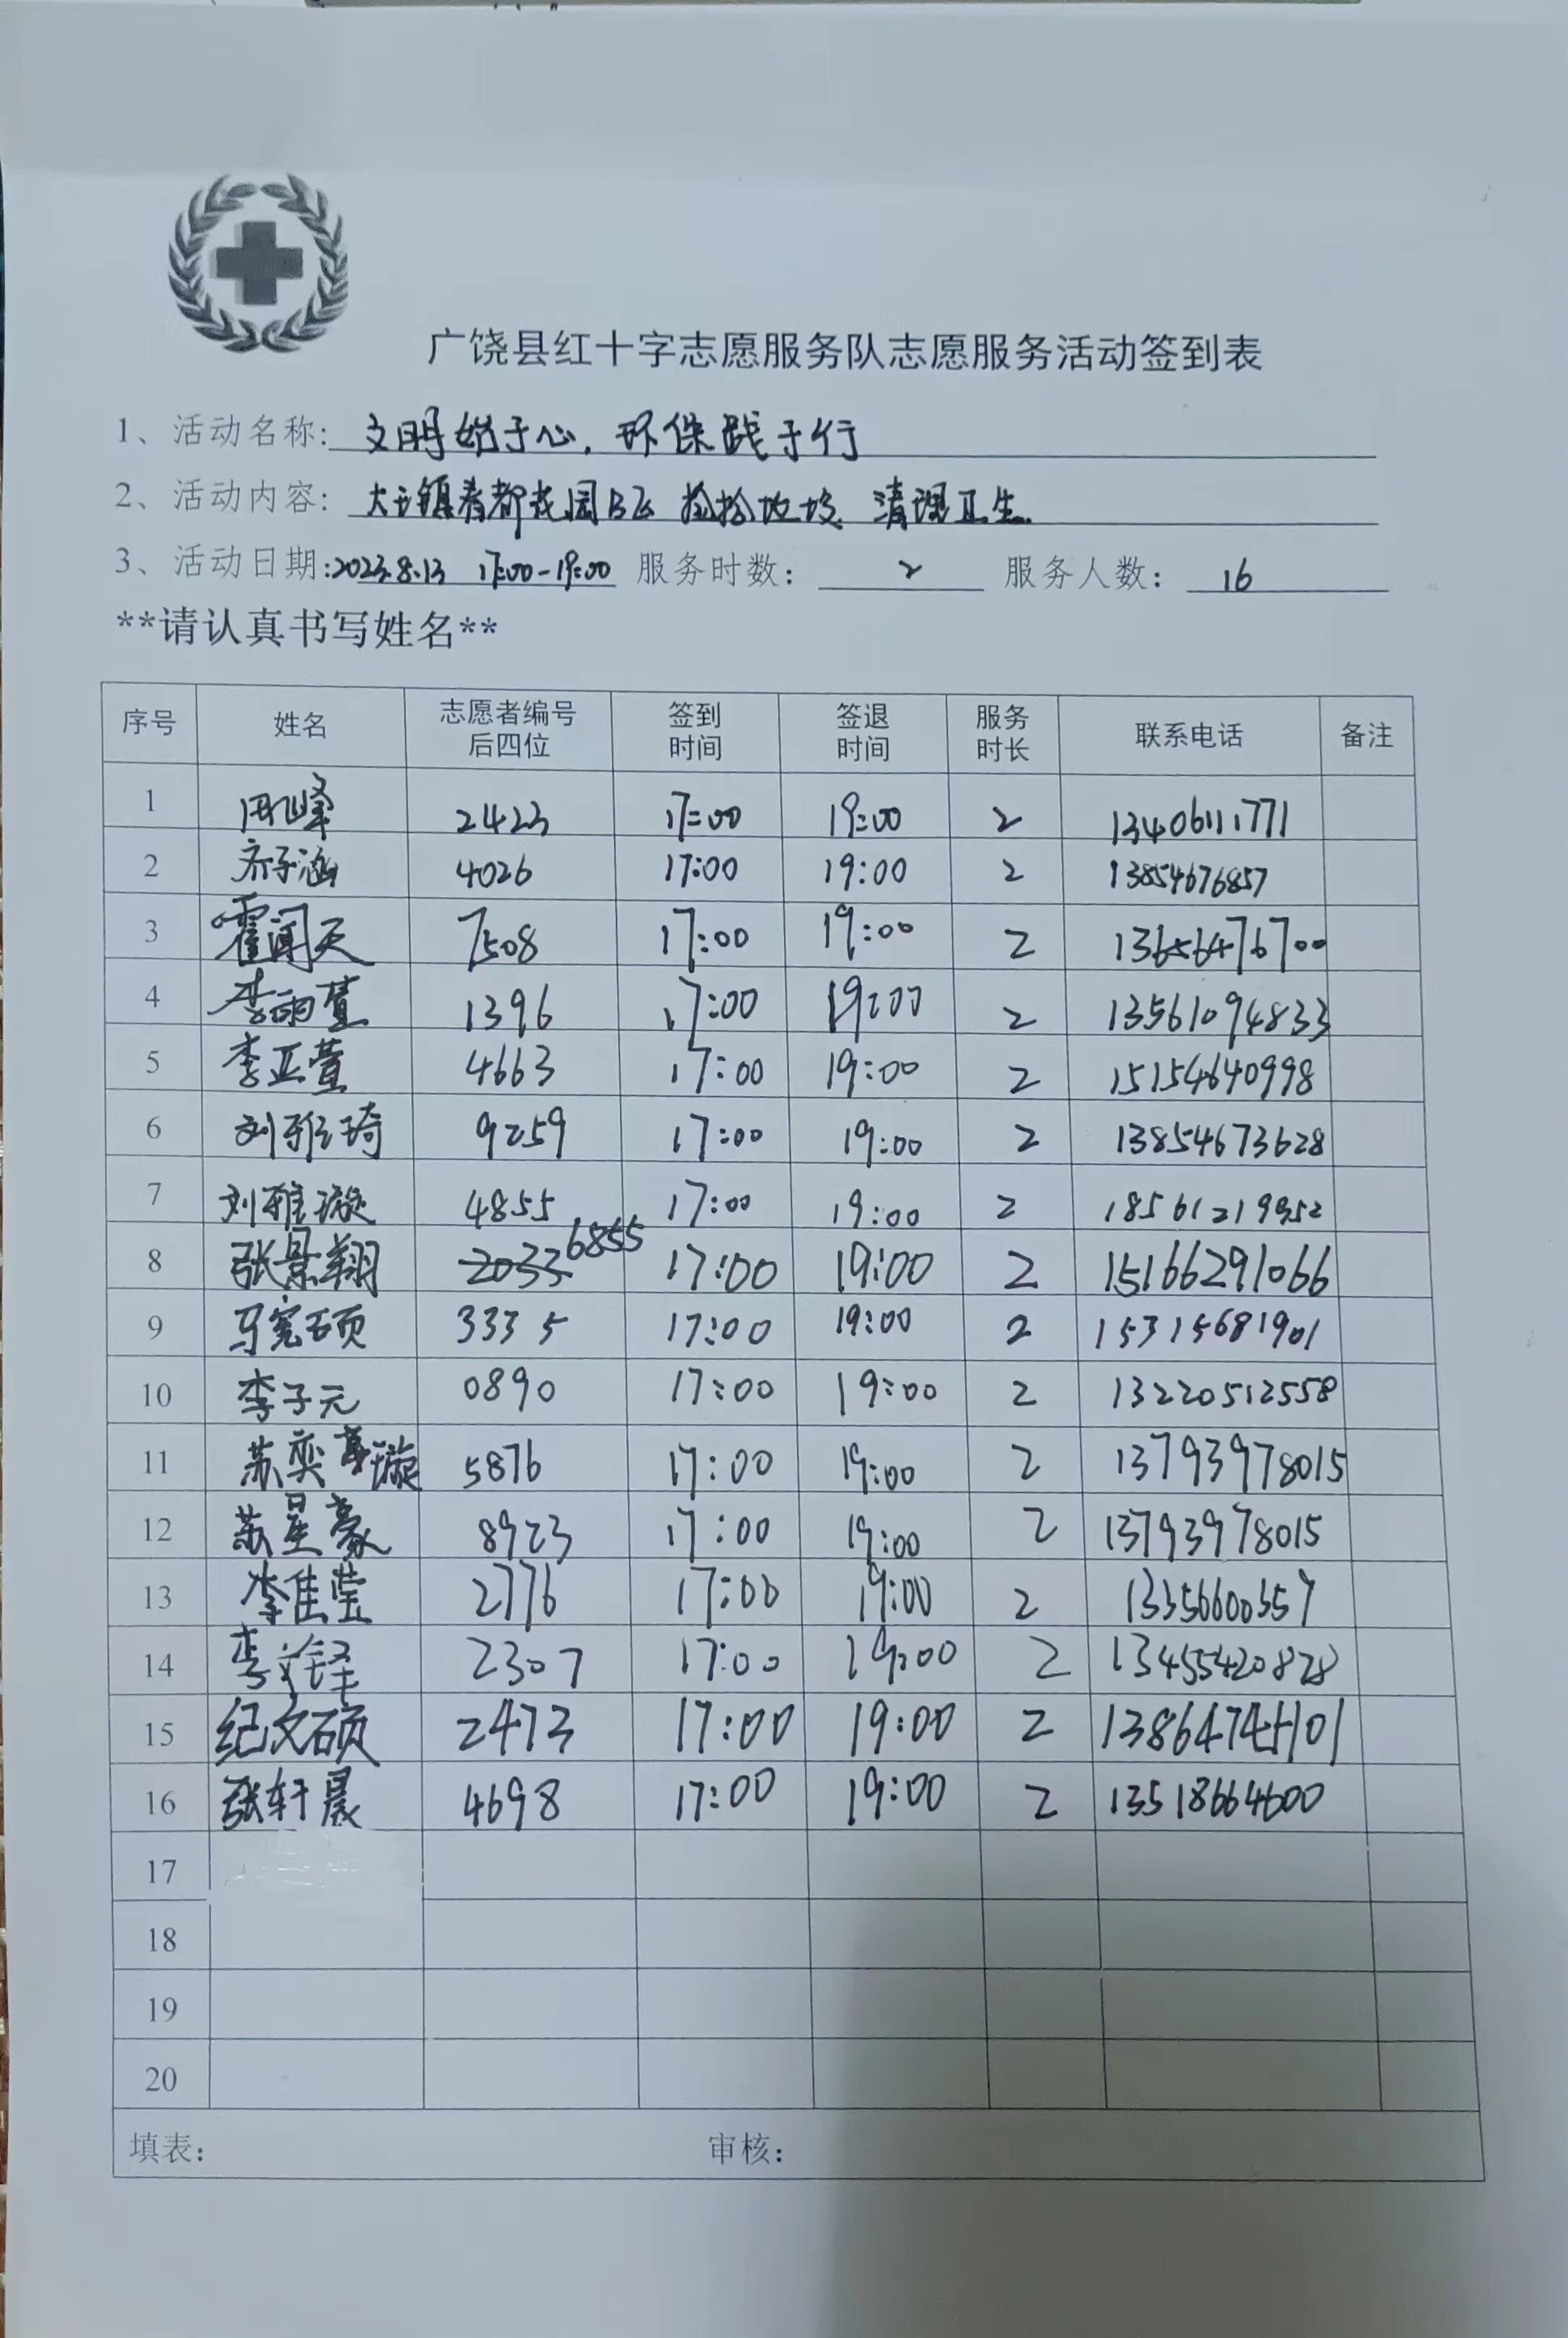 广饶县红十字志愿服务队志愿服务活动签到表
1、活动名称: 文明始于心，环保践于行
2、活动内容: 大王镇春都花园B区 捡拾垃圾、清理卫生
3、活动日期:2023.8.13 17:00-19:00 服务时数: 2 服务人数: 16
**请认真书写姓名**
序号 姓名 志愿者编号后四位 签到时间 签退时间 服务时长 联系电话 备注
1 峰 2423 17:00 19:00 2 13406111771
2 齐子涵 4026 17:00 19:00 2 13854676857
3 霍闻天 7508 17:00 19:00 2 13656476700
4 李雨萱 1396 17:00 19:00 2 13561094833
5 李亚萱 4663 17:00 19:00 2 15154640998
6 刘雅琦 9259 17:00 19:00 2 13854673628
7 刘雅璇 4855 17:00 19:00 2 18561219952
8 张景翔 2033 6855 17:00 19:00 2 15166291066
9 马宽硕 3335 17:00 19:00 2 15315681901
10 李子元 0890 17:00 19:00 2 13220512558
11 苏奕璇 5876 17:00 19:00 2 13793978015
12 苏星豪 8923 17:00 19:00 2 13793978015
13 李佳莹 2776 17:00 19:00 2 13356600357
14 李文铎 2307 17:00 19:00 2 13455420828
15 纪文硕 2473 17:00 19:00 2
16 张轩晨 4698 17:00 19:00 2 13518664600
17
18
19
20
填表: 审核: